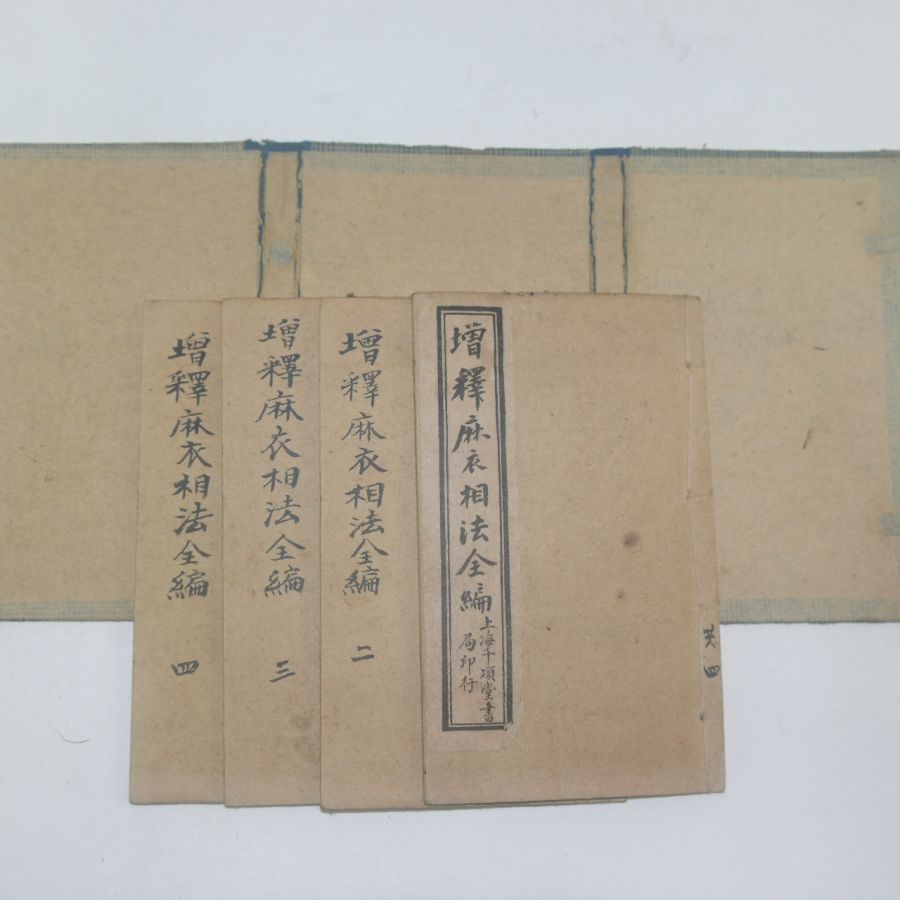 增釋麻衣相法全編
上海千頃堂書
局印行
共四
增釋麻衣相法全編 二
增釋麻衣相法全編 三
增釋麻衣相法全編 四